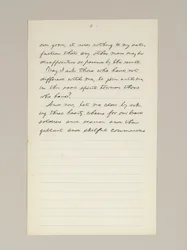 our years, it was nothing to my satis-
faction that any other man may be
disappointed or pained by the result.
May I ask those who have not
differed with me, to join with me,
in this same spirit towards those
who have?
And now, let me close by ask-
ing three hearty cheers for our brave
soldiers and seamen and their
gallant and skilful commanders